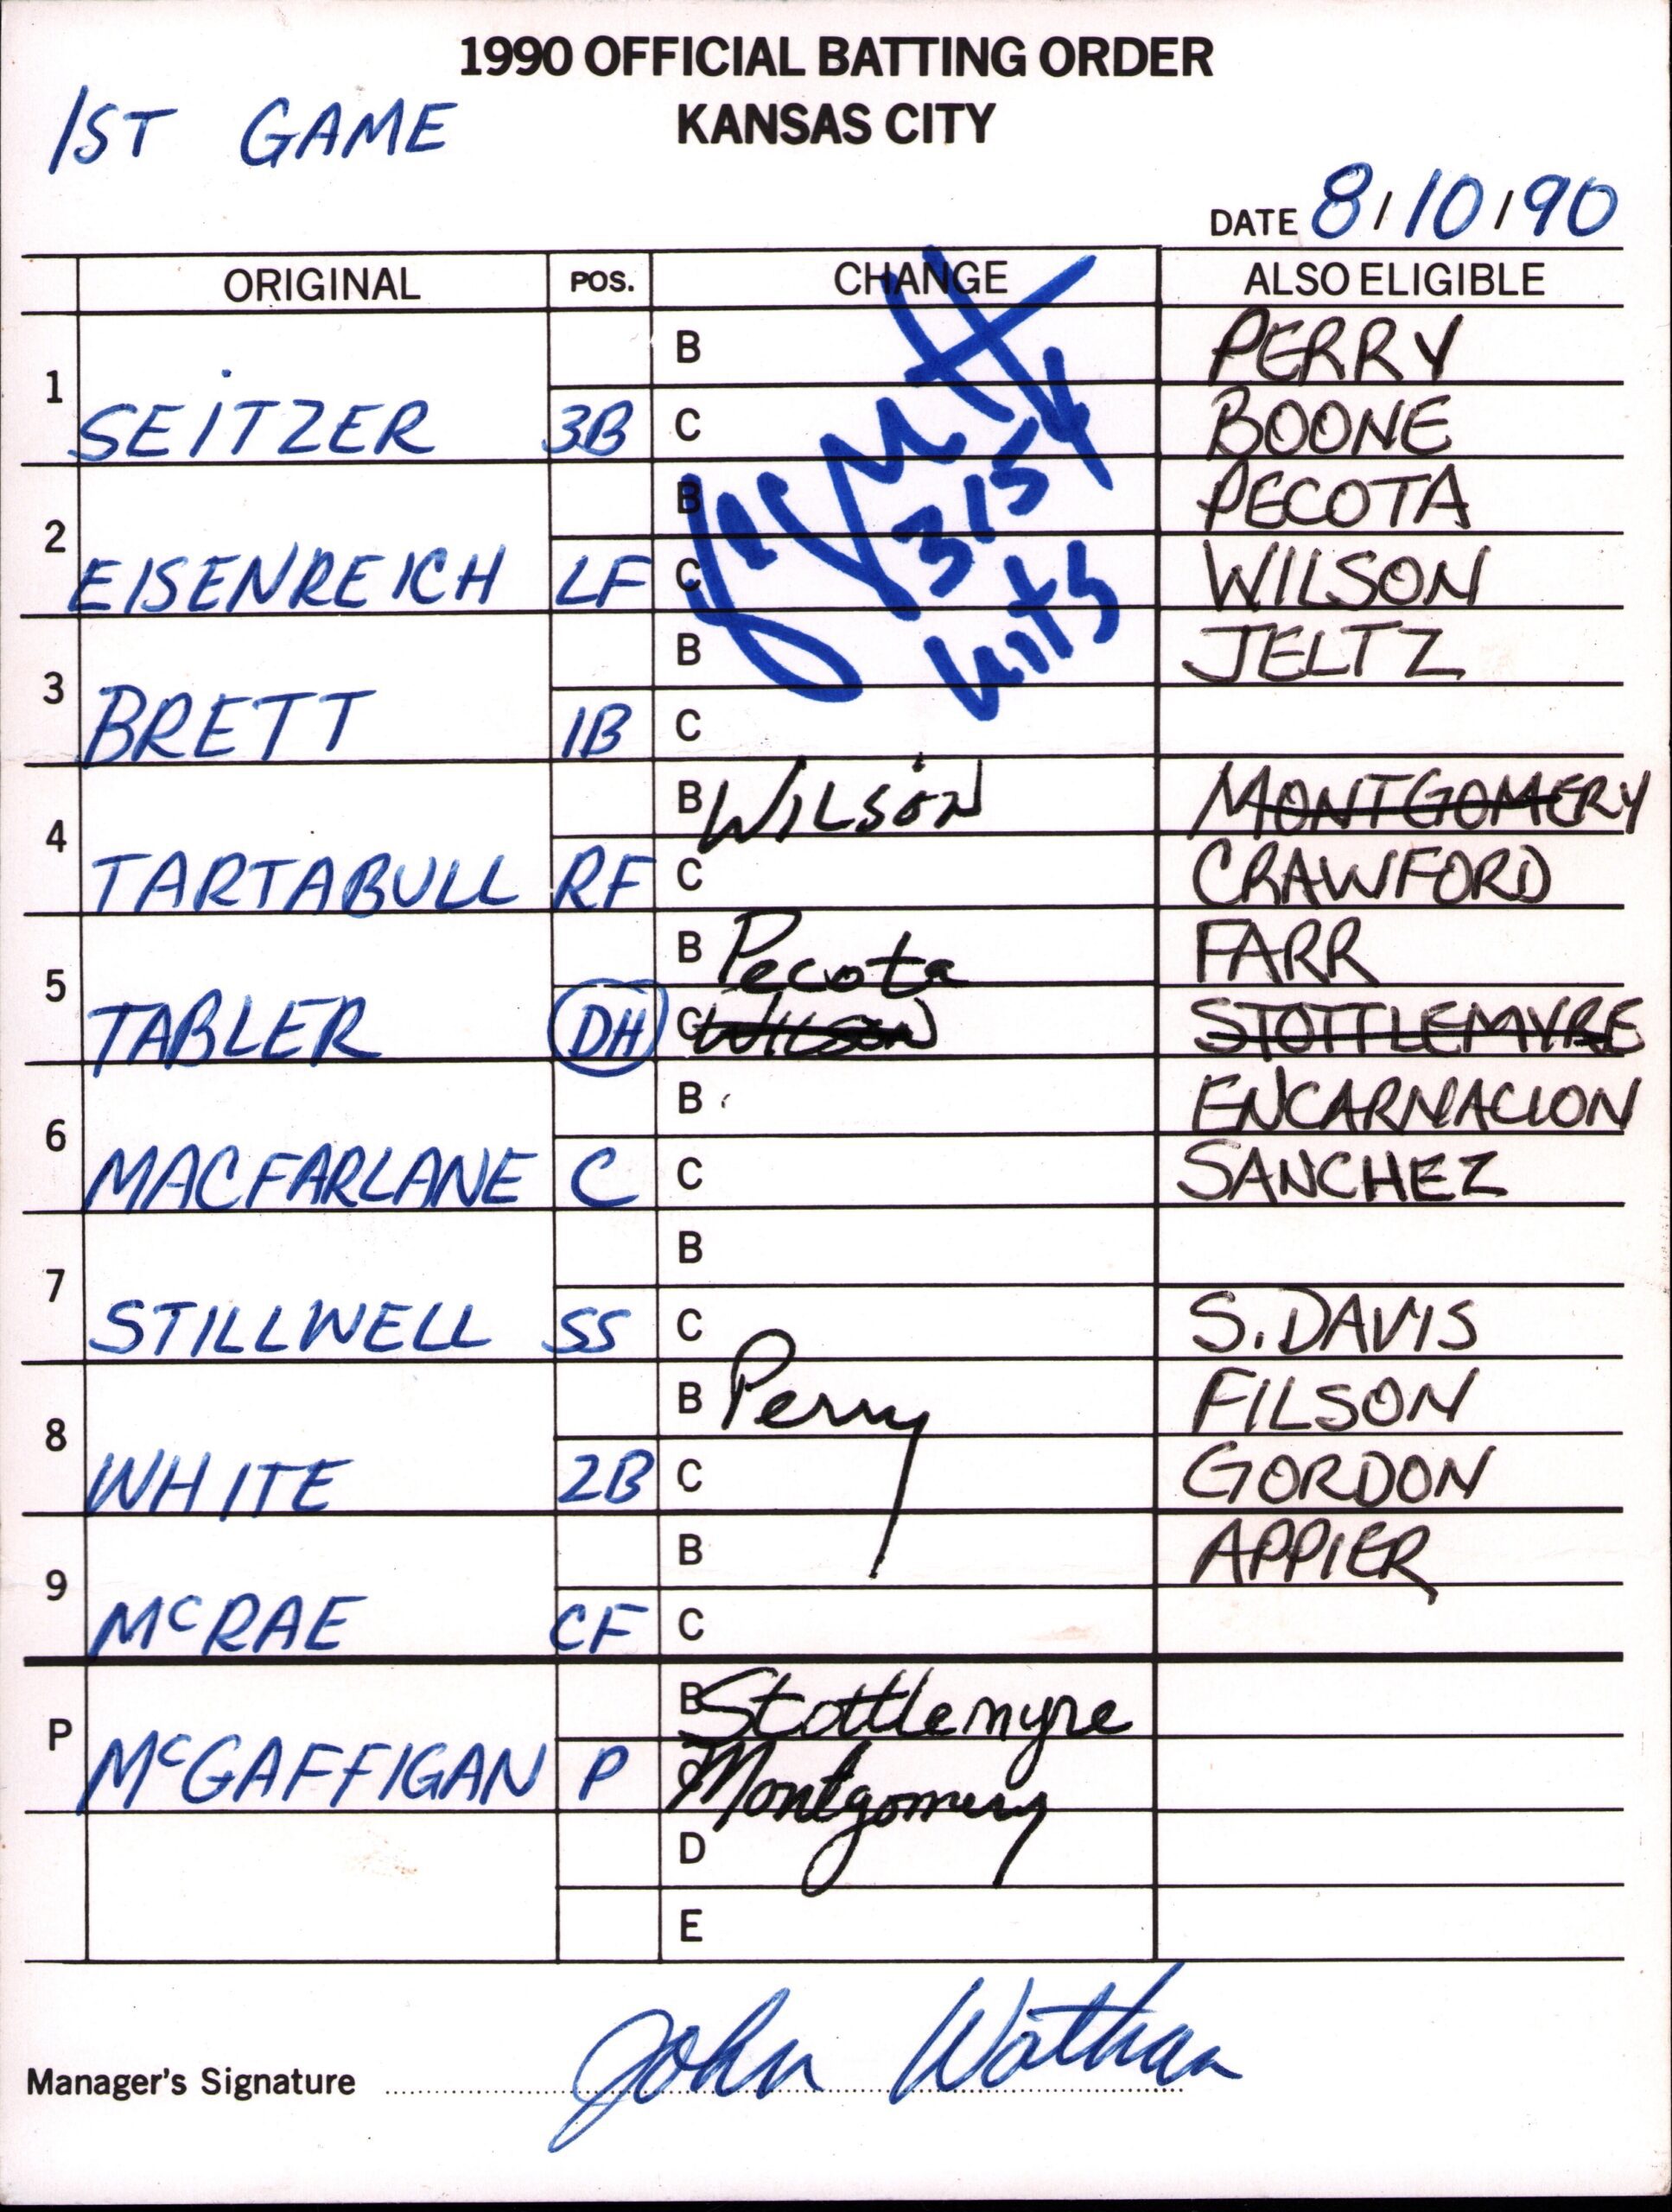 1990 OFFICIAL BATTING ORDER
KANSAS CITY
1ST GAME
DATE 8/10/90
ORIGINAL POS. CHANGE ALSO ELIGIBLE
1 SEITZER 3B B C
2 EISENREICH LF B C
3 BRETT 1B B C
3154
hits
4 TARTABULL RF B WILSON C
5 TABLER DH B Pecota C WILSON
6 MACFARLANE C B C
7 STILLWELL SS B C
8 WHITE 2B B Perry C
9 McRAE CF B C
P McGAFFIGAN P B Stottlemyre
C Montgomery
D
E
PERRY
BOONE
PECOTA
WILSON
JELTZ
MONTGOMERY
CRAWFORD
FARR
STOTTLEMYRE
ENCARNACION
SANCHEZ
S. DAVIS
FILSON
GORDON
APPIER
Manager's Signature John Wathan